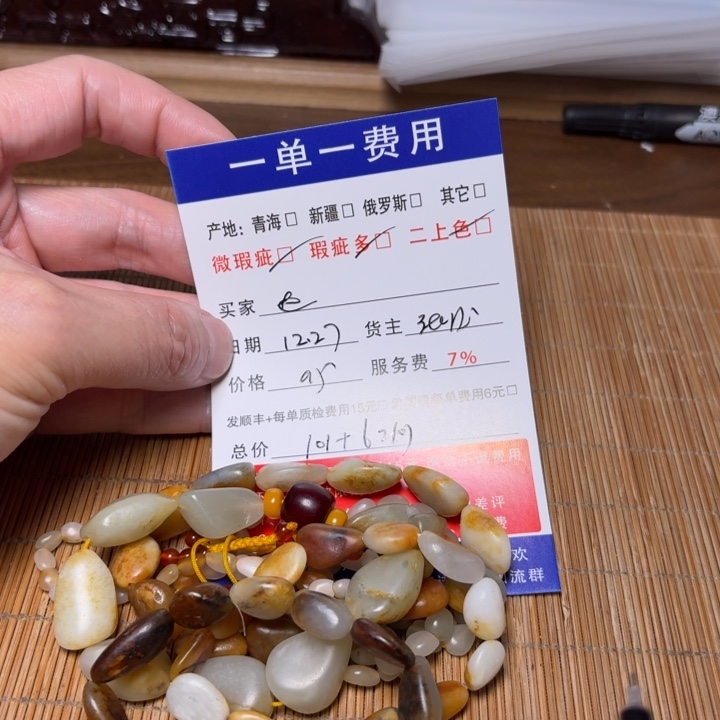 一单一费用
产地: 青海□ 新疆□ 俄罗斯□ 其它□
微瑕疵□ 瑕疵多□ 二上色□
买家
日期 12.27 货主
价格 95 服务费 7%
发顺丰+每单质检费用15元 单费用6元□
总价 101+6
费用
差评
费
欢
流群